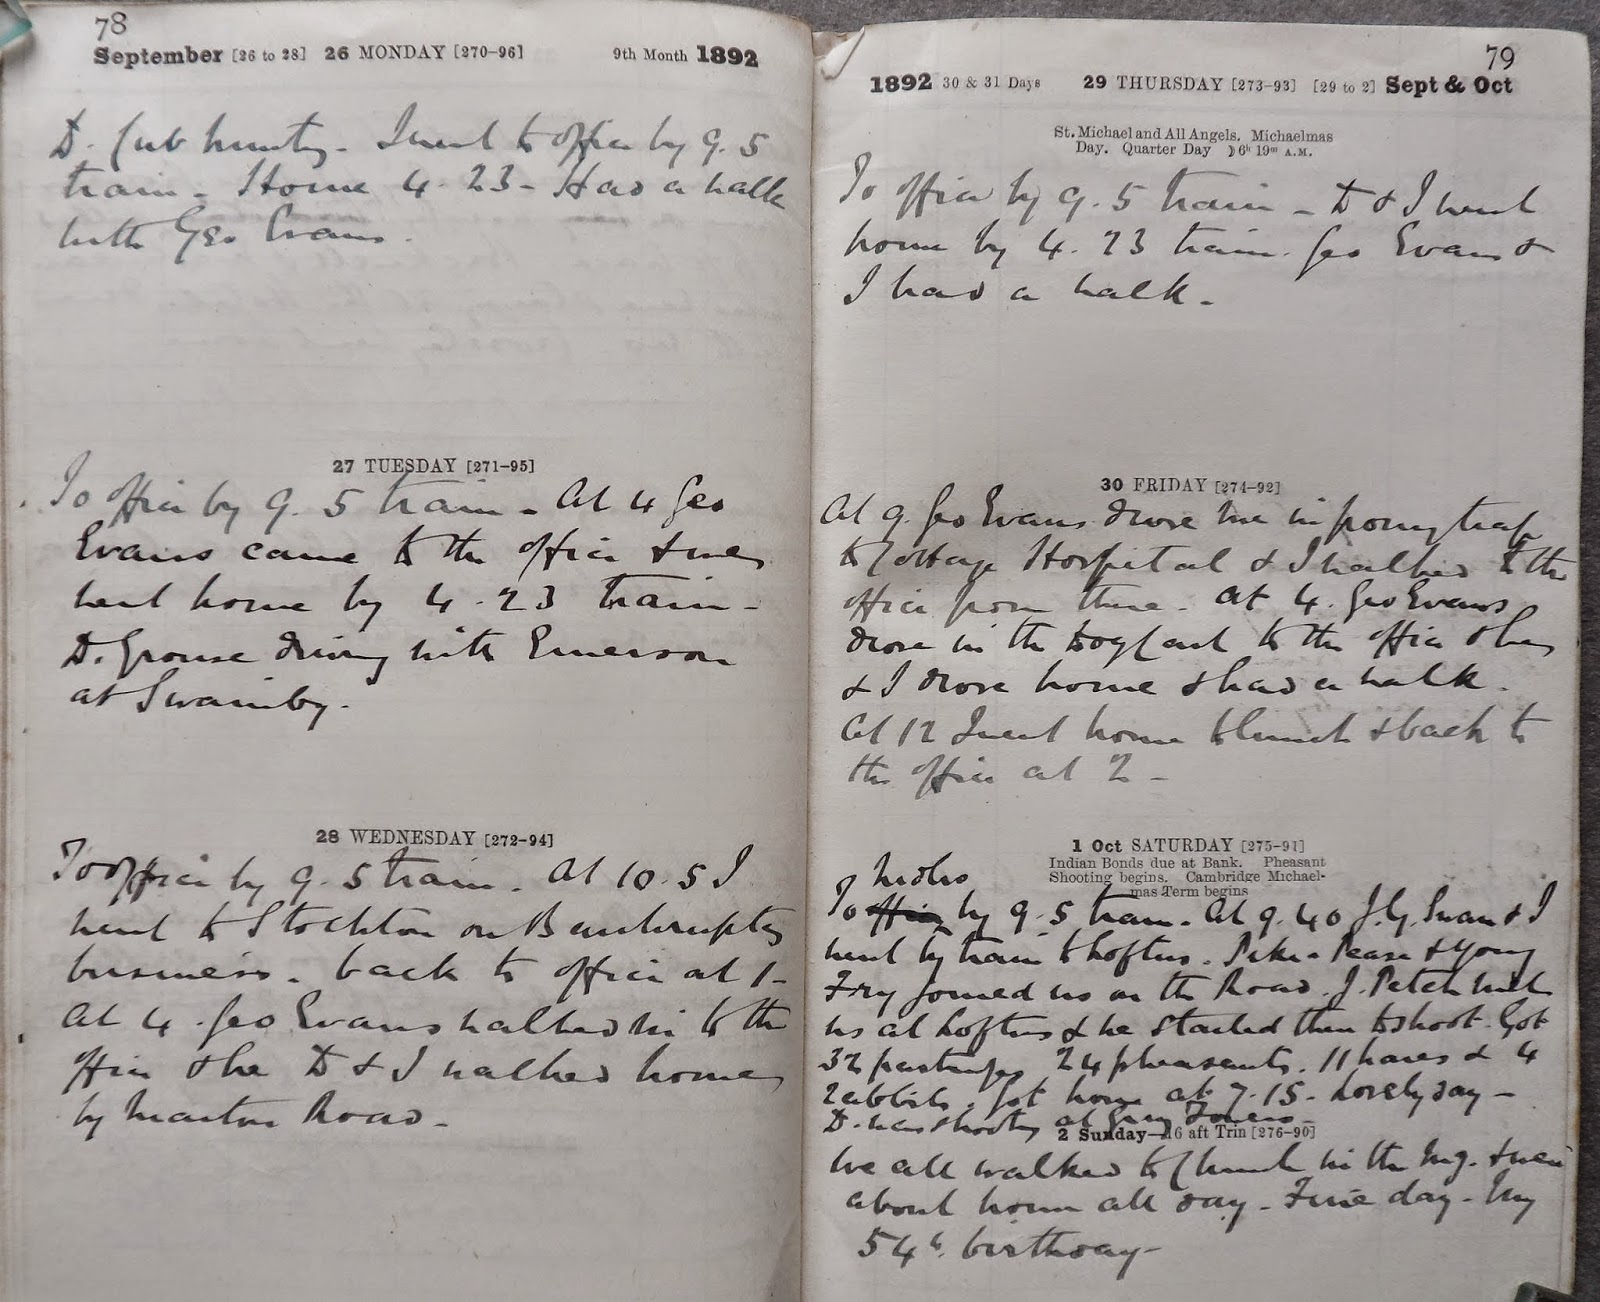 78
September [26 to 28] 26 MONDAY [270-96] 9th Month 1892
D. Cub hunting - I went to office by 9.5
train - Home 4.23 - Had a walk
with Geo Evans.
27 TUESDAY [271-95]
To office by 9.5 train - At 4 Geo
Evans came to the office & we
went home by 4.23 train -
D. Grouse driving with Emerson
at Swainby.
28 WEDNESDAY [272-94]
To office by 9.5 train. At 10.5 I
went to Stockton on Bankruptcy
business. back to office at 1 -
At 4. Geo Evans walked in to the
office & he D & I walked home
by Marton Road -
79
1892 30 & 31 Days 29 THURSDAY [273-93] [29 to 2] Sept & Oct
St. Michael and All Angels. Michaelmas
Day. Quarter Day ☽ 6h 19m A.M.
To office by 9.5 train - D & I went
home by 4.23 train. Geo Evans &
I had a walk -
30 FRIDAY [274-92]
At 9. Geo Evans drove me in pony trap
to Cottage Hospital & I walked to the
office from there. At 4. Geo Evans
drove in the Dog Cart to the office & he
& I drove home & had a walk.
At 12 I went home to lunch & back to
the office at 2 -
1 Oct SATURDAY [275-91]
Indian Bonds due at Bank. Pheasant
Shooting begins. Cambridge Michael-
mas Term begins
To office by 9.5 train - At 9.40 J.G. Swan & I
went by train to Loftus. Pike - Pease & young
Fry joined us on the Road. J. Petch met
us at Loftus & he started then to shoot. Got
32 partridges 24 pheasants. 11 hares & 4
Rabbits. Got home at 7.15. Lovely day -
D. was shooting at
2 Sunday—16 aft Trin [276-90]
We all walked to Church in the Mg. & were
about home all day - Fine day - My
54th birthday -